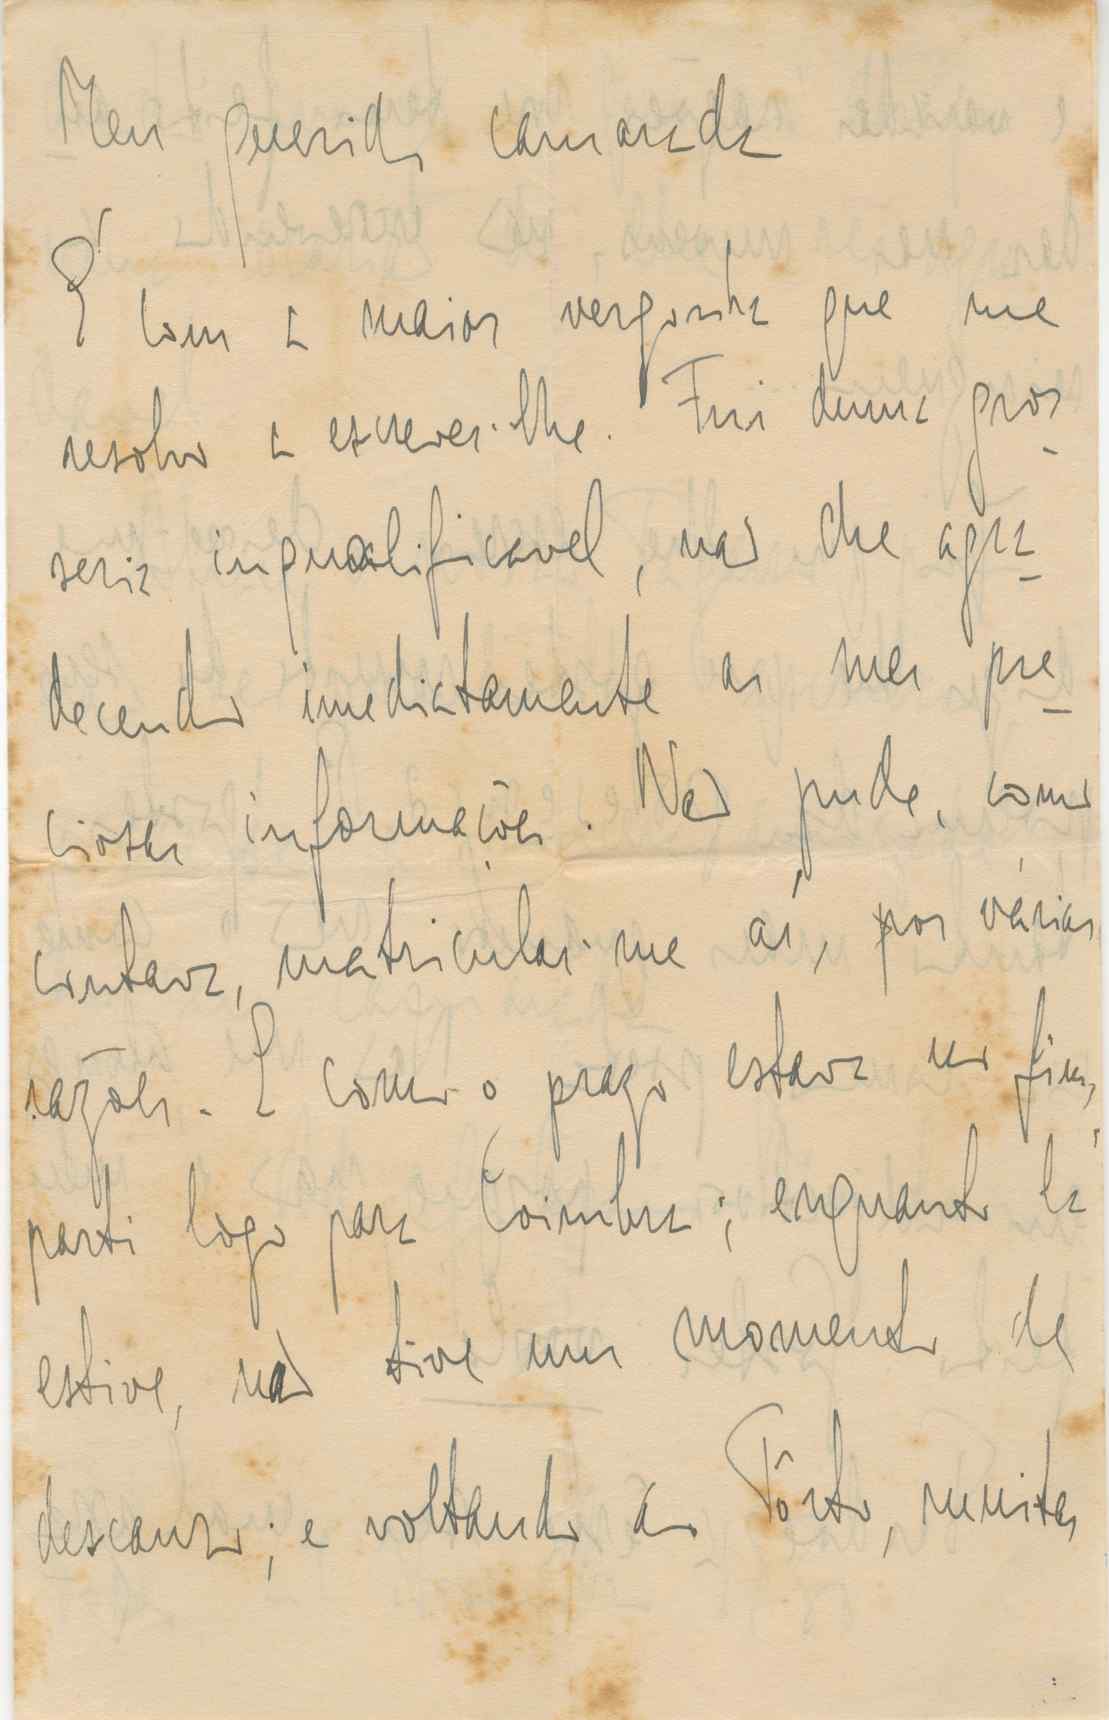 Meu querido camarada
É com a maior vergonha que me
resolvo a escrever-lhe. Fui duma gros-
seria inqualificavel, não lhe agra-
decendo imediatamente as suas pre-
ciosas informações. Não pude, como
contava, matricular-me aí, por várias
razões. E como o prazo estava no fim,
parti logo para Coimbra; enquanto lá
estive, não tive um momento de
descanso; e voltando ao Pôrto, muitas